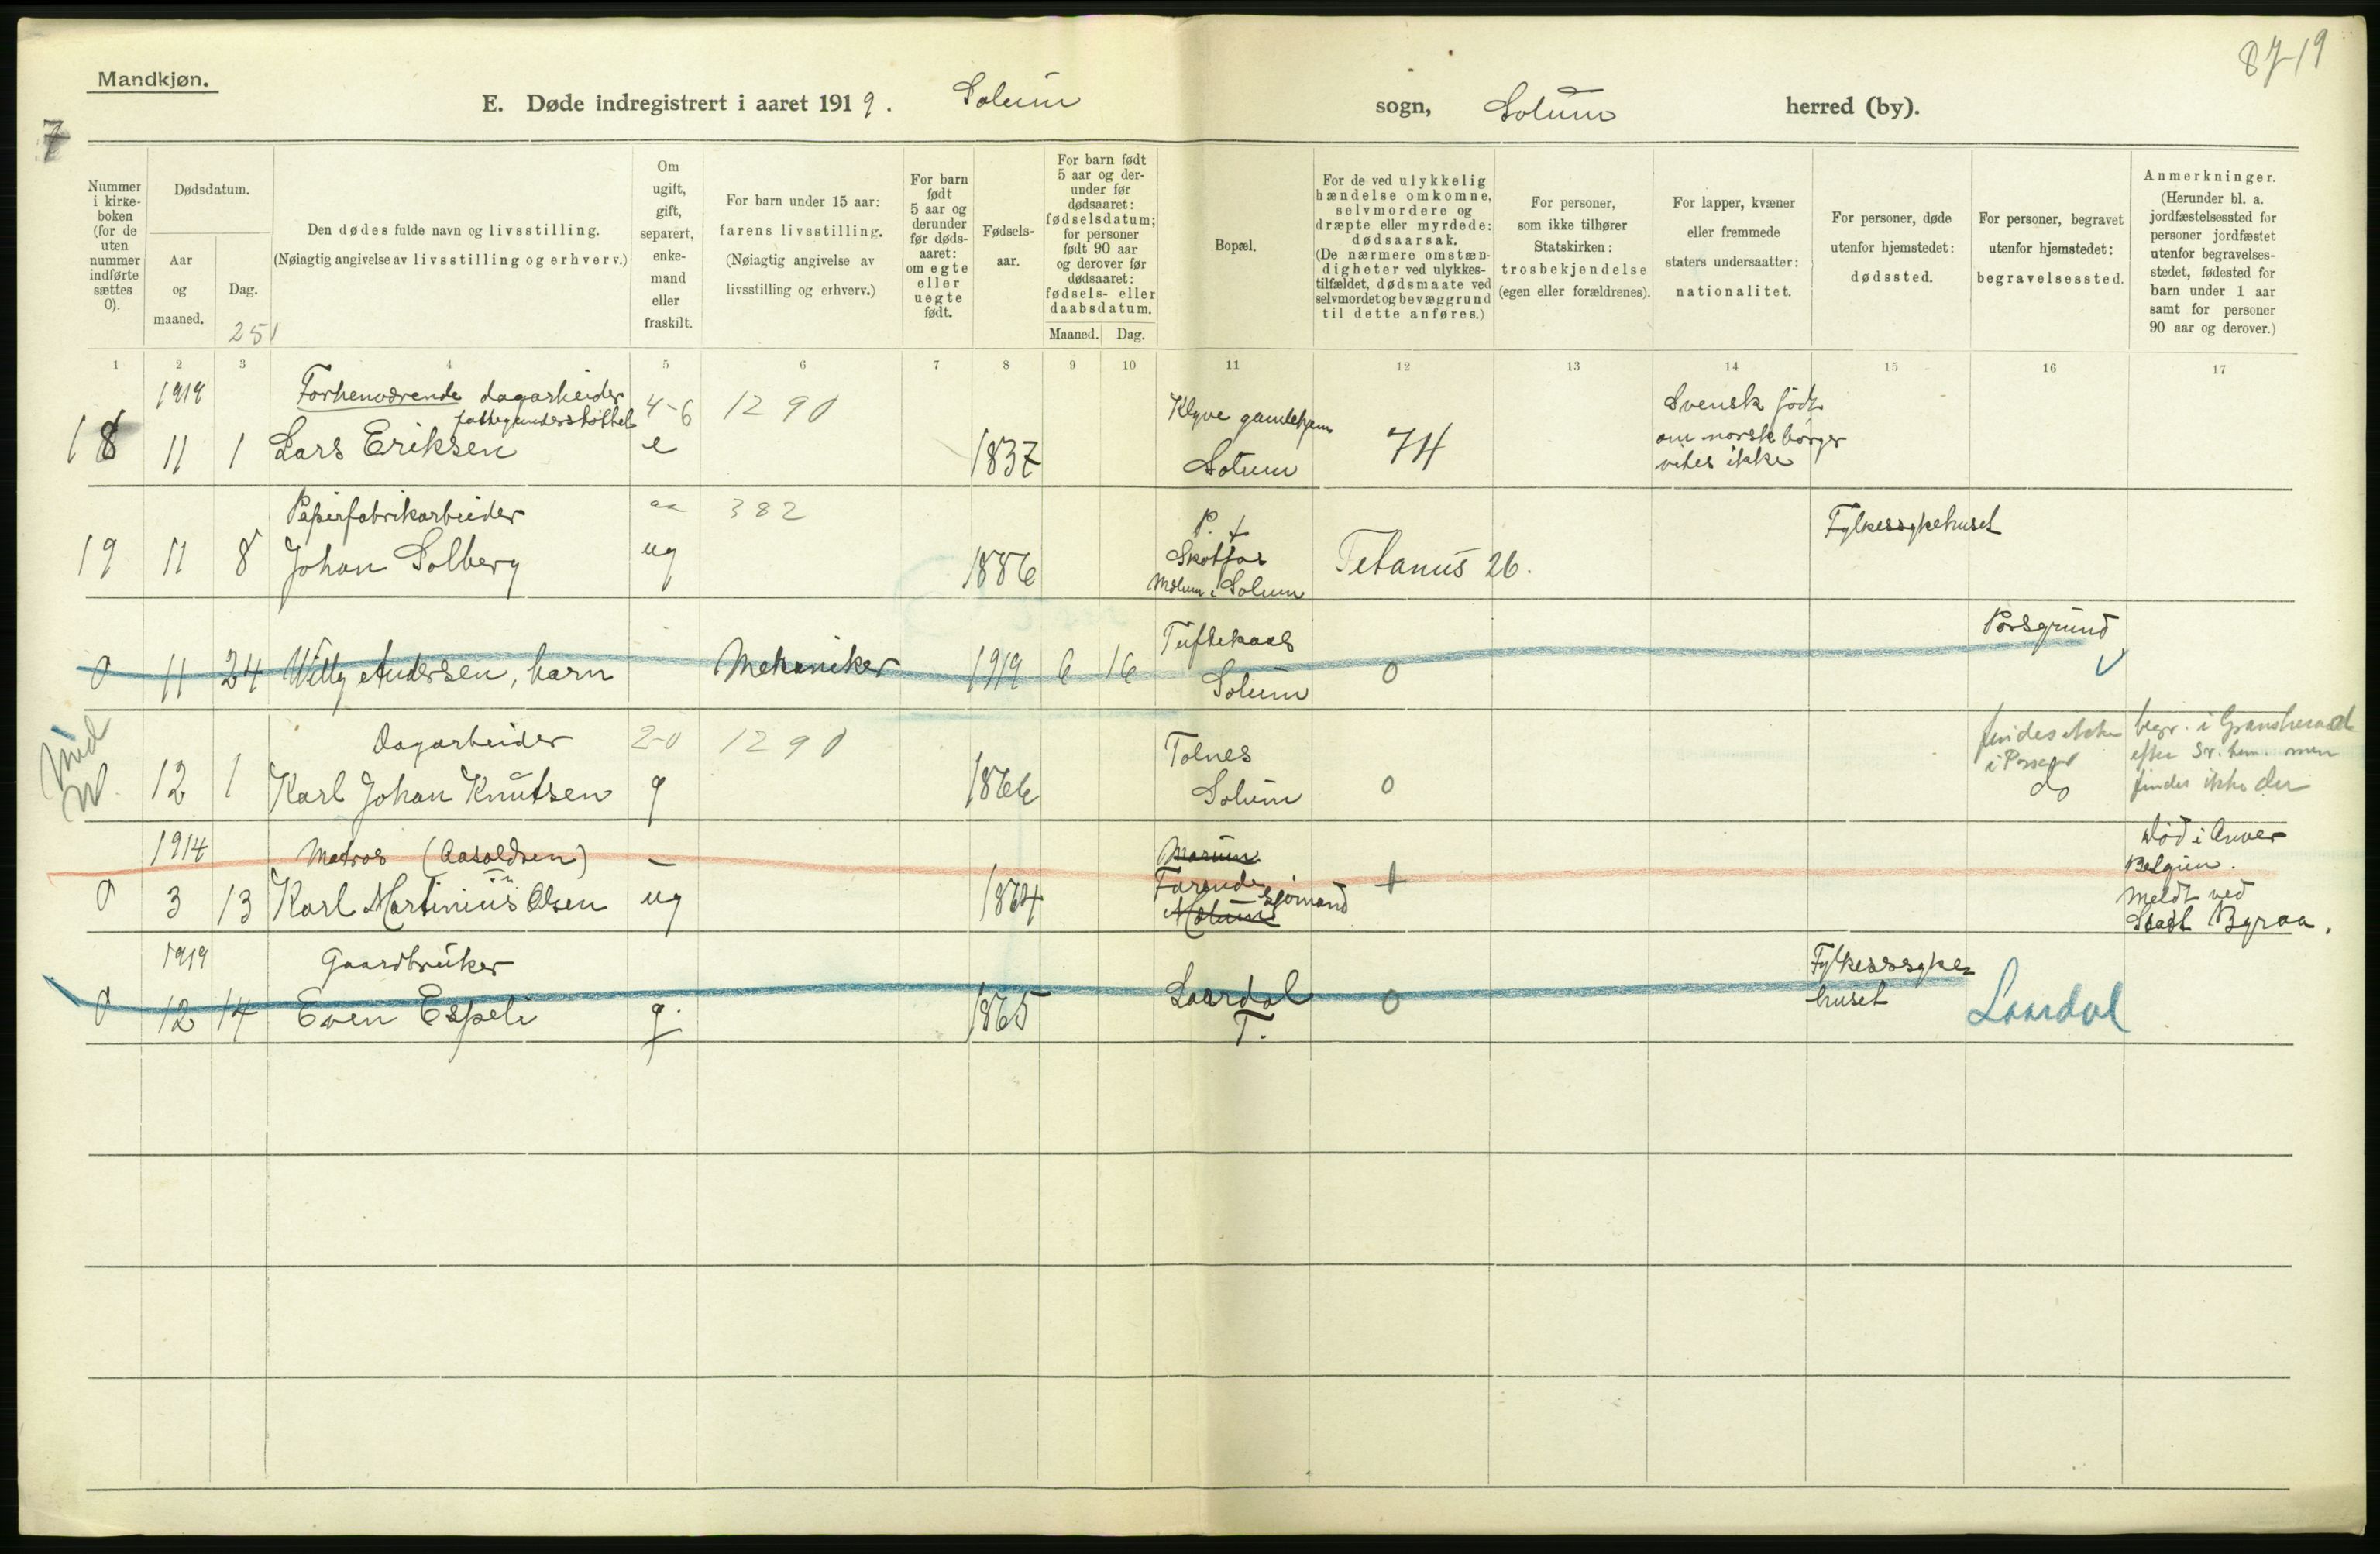 Mandkjøn.
87-19
E. Døde indregistrert i aaret 1919. Solum sogn, Solum herred (by).
7
Nummer i kirke-boken (for de uten nummer indførte sættes 0).
Dødsdatum.
Aar og maaned.
Dag.
251
Den dødes fulde navn og livsstilling.
(Nøiagtig angivelse av livsstilling og erhverv.)
Om ugift, gift, separert, enke-mand eller fraskilt.
For barn under 15 aar: farens livsstilling. (Nøiagtig angivelse av livsstilling og erhverv.)
For barn født 5 aar og derunder før døds-aaret: om egte eller uegte født.
Fødsels-aar.
For barn født 5 aar og der-under før dødsaaret: fødselsdatum; for personer født 90 aar og derover før dødsaaret: fødsels- eller daabsdatum.
Maaned.
Dag.
Bopæl.
For de ved ulykkelig hændelse omkomne, selvmordere og dræpte eller myrdede: dødsaarsak. (De nærmere omstæn-digheter ved ulykkes-tilfældet, dødsmaate ved selvmordet og bevæggrund til dette anføres.)
For personer, som ikke tilhører Statskirken: trosbekjendelse (egen eller forældrenes).
For lapper, kvæner eller fremmede staters undersaatter: nationalitet.
For personer, døde utenfor hjemstedet: dødssted.
For personer, begravet utenfor hjemstedet: begravelsessted.
Anmerkninger. (Herunder bl. a. jordfæstelsessted for personer jordfæstet utenfor begravelses-stedet, fødested for barn under 1 aar samt for personer 90 aar og derover.)
1 2 3 4 5 6 7 8 9 10 11 12 13 14 15 16 17
1919 Forhenværende dagarbeider 4-6 1290 Klyve gamlehjem Svensk født
fattigunderstøttet om norsk borger
18 11 1 Lars Eriksen e 1837 Solum 74 vites ikke
Papirfabrikarbeider 382 Fylkessykehuset
P. +
19 11 8 Johan Solberg ug 1886 Skotfos Tetanus 26.
Mælum i Solum
Tuftekaas Porsgrund
0 11 24 Willy Andersen, barn Mekaniker 1919 6 16 Solum 0
Dagarbeider 2-0 1290 Tolnes findes ikke begr. i Gransherad
i Porsgr efter men
12 1 Karl Johan Knutsen g 1866 Solum 0 do findes ikke der
1914 Matros (Aasoldsen) - Død i Anver
Farende Belgien.
0 3 13 Karl Martinius Olsen ug 1864 sjømand + Meldt ved
Mælum Stat Byraa.
1919 Gaardbruker Fylkessyke=
0 12 14 Even Espeli g. 1865 Laardal 0 huset Laardal
T.